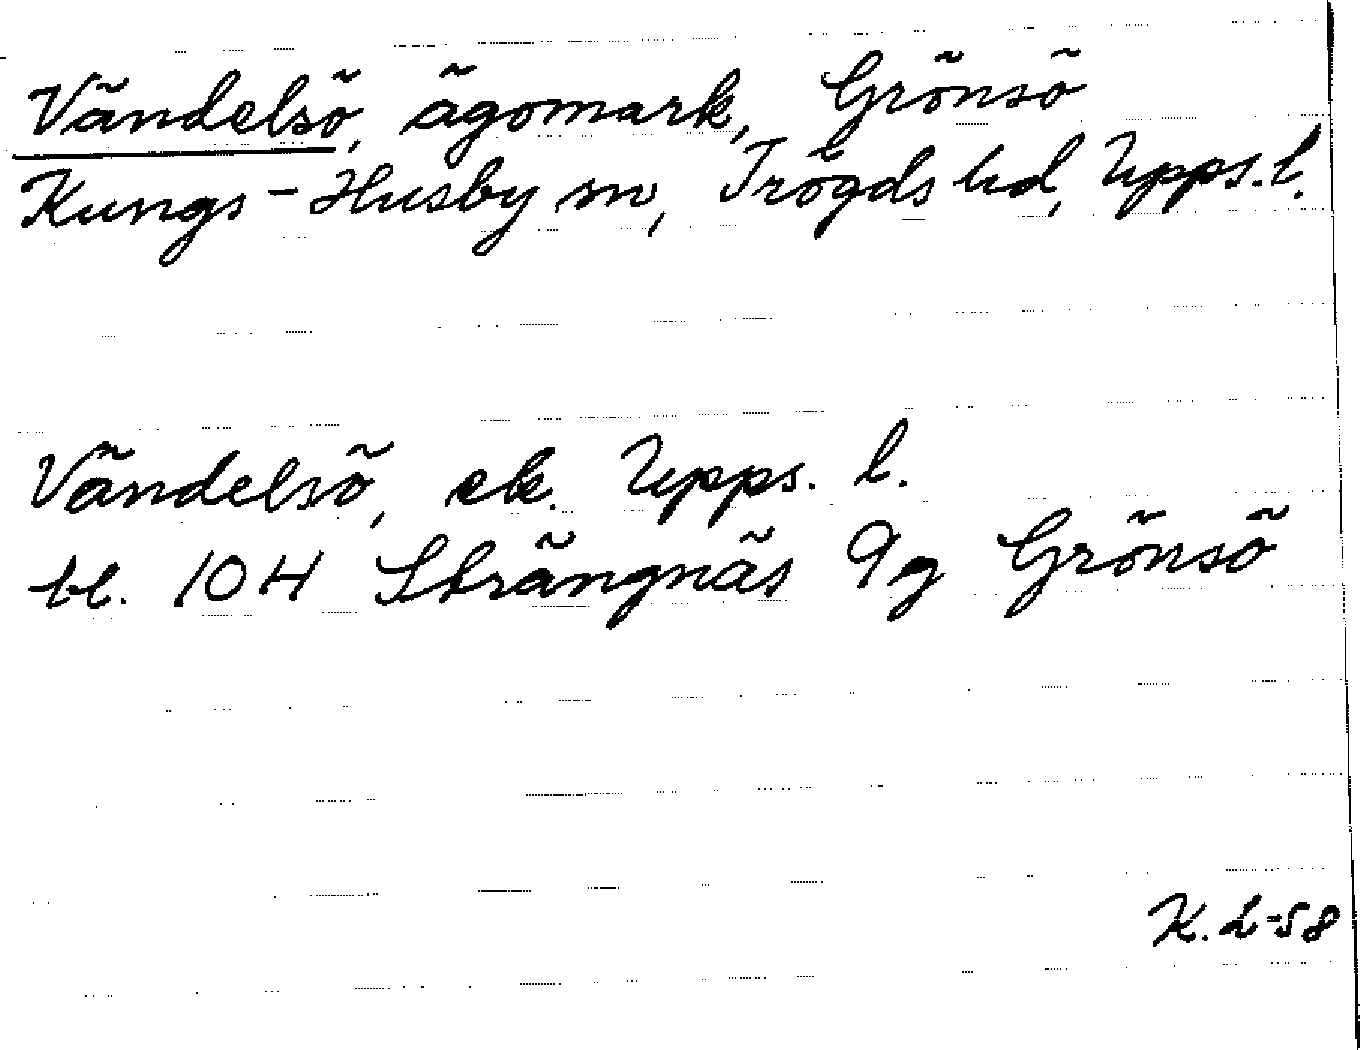 Vändelsö, ägomark, Grönsö
Kungs-Husby sn, Trögds hd, Upps. l.
Vändelsö, ek. Upps. l.
bl. 10H Strängnäs 9g Grönsö
K. L-58